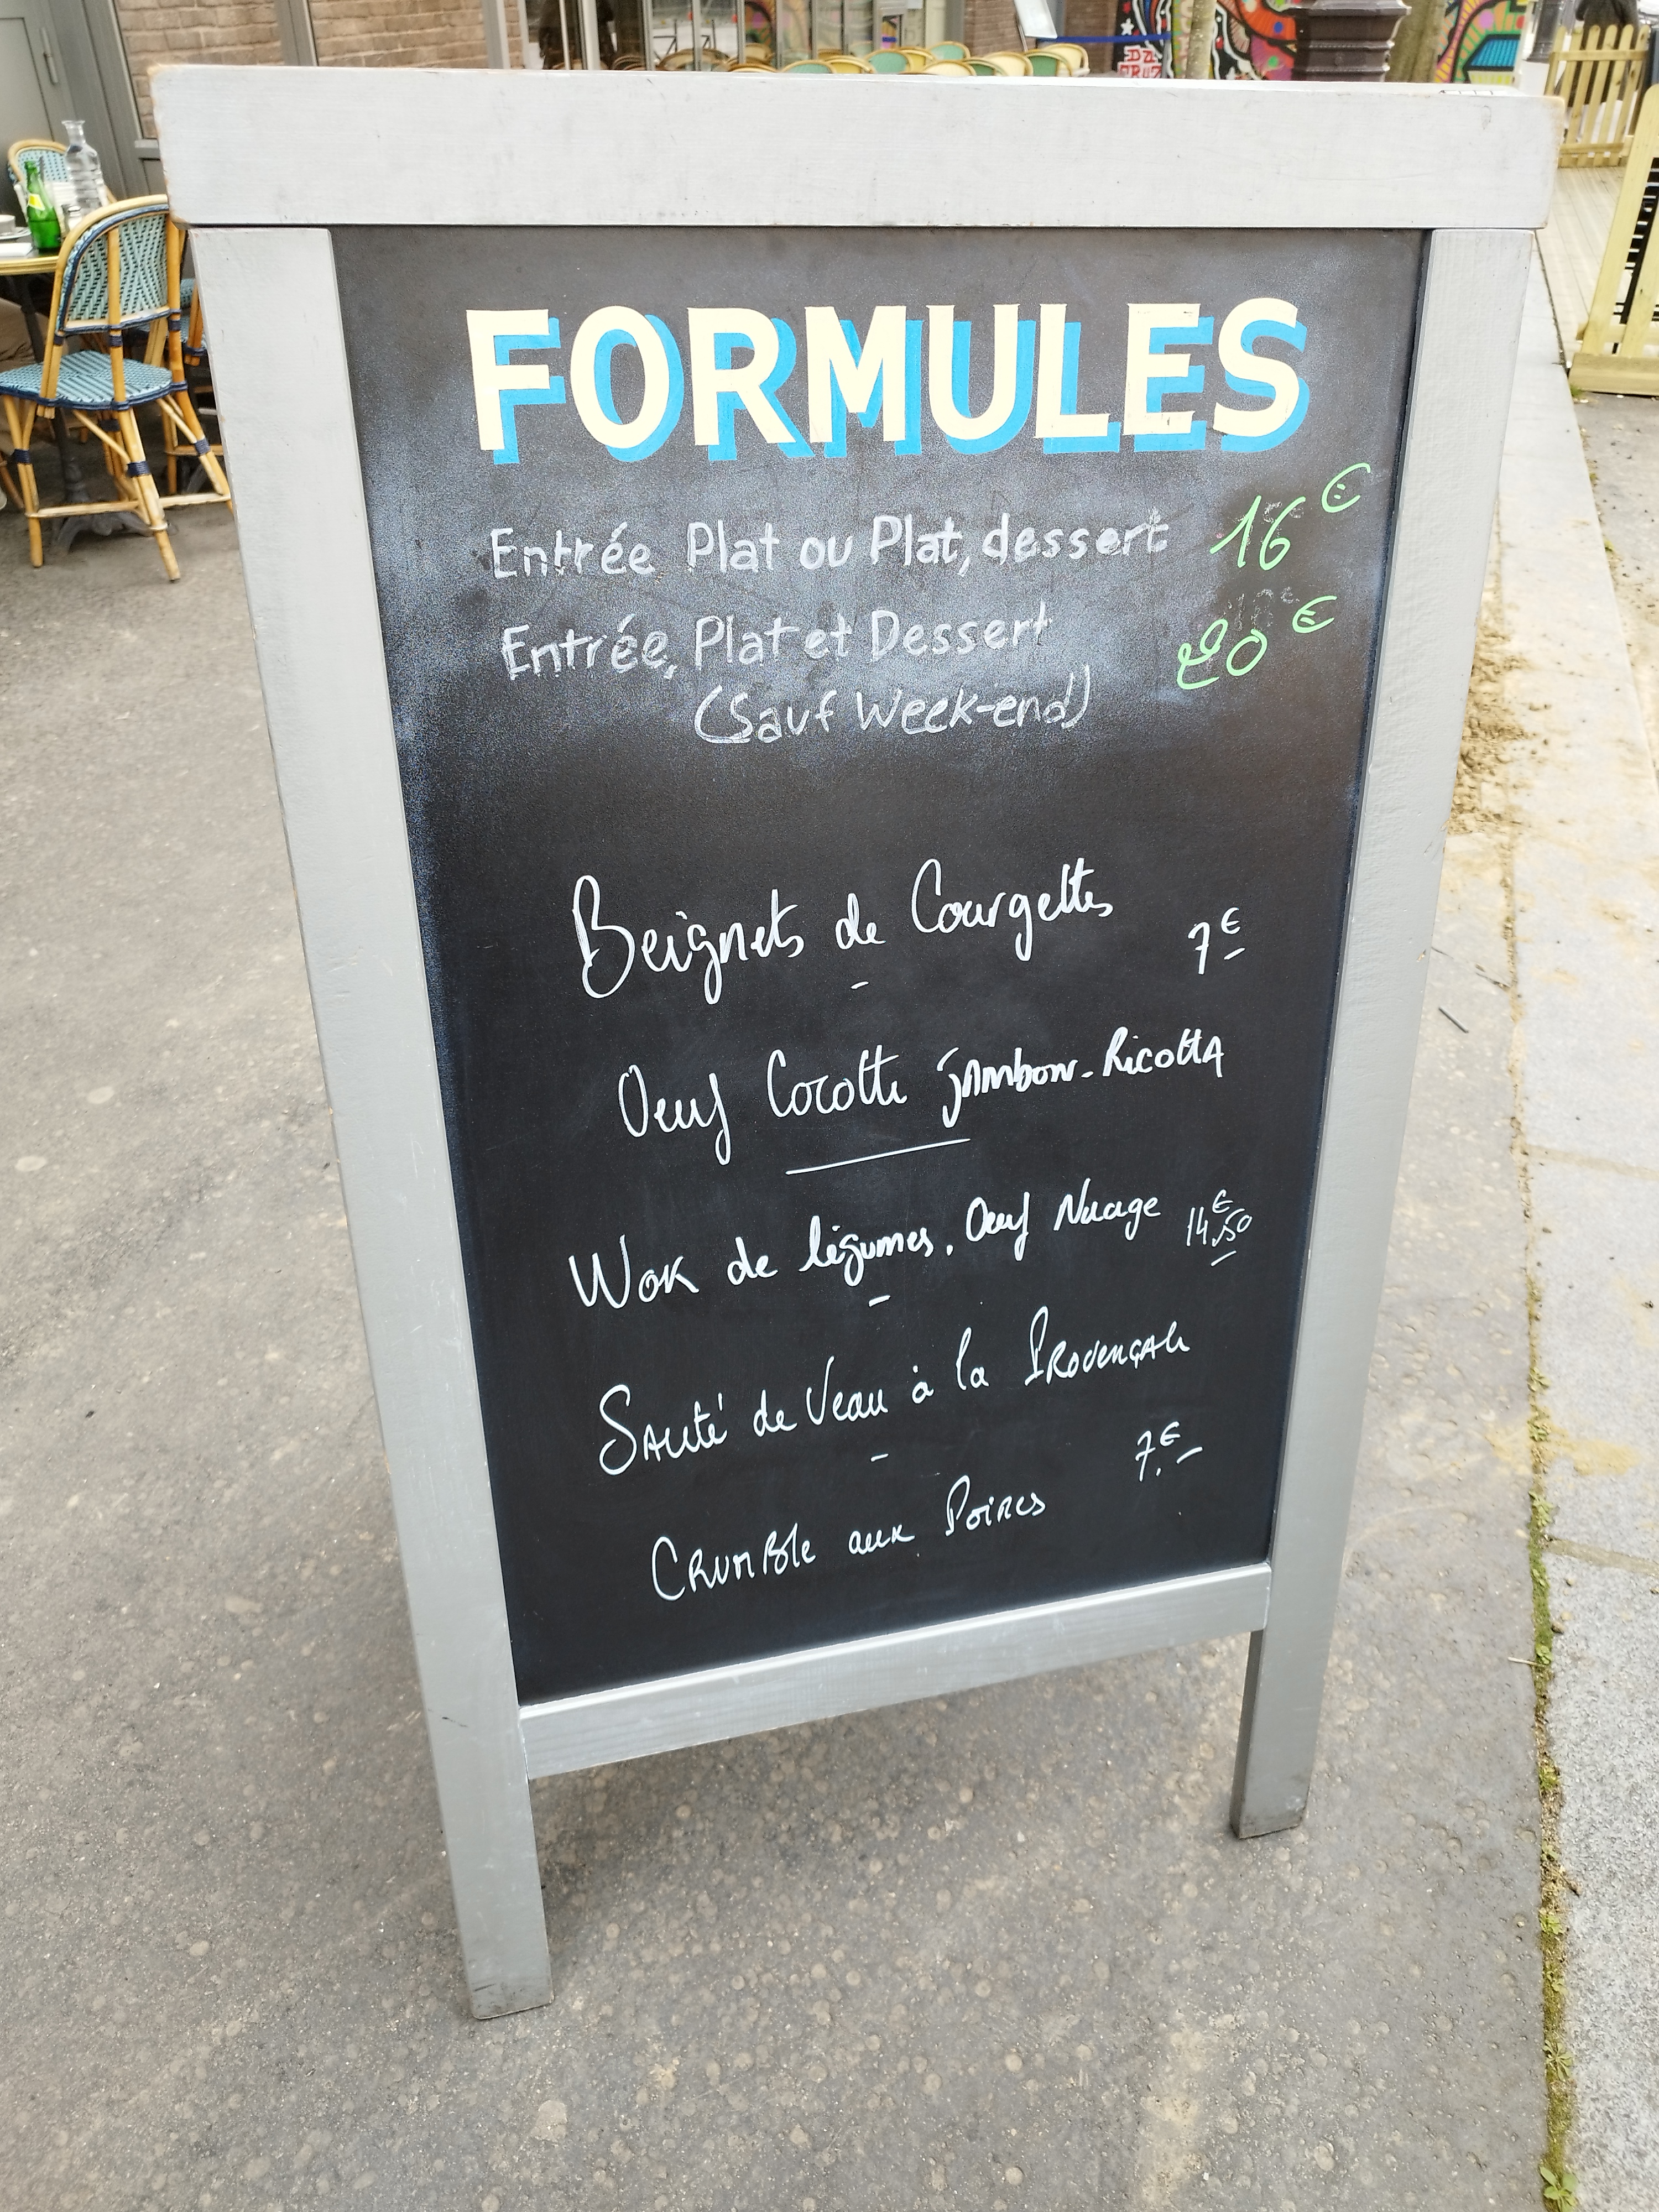 DA
CRUZ
FORMULES
Entrée Plat ou Plat, dessert 16€
Entrée, Plat et Dessert 20€
(Sauf Week-end)
Beignets de Courgettes 7€
-
Oeuf Cocotte jambon-Ricotta
Wok de légumes, Oeuf Nuage 14€,50
-
Sauté de Veau à la Provençale
-
7€.-
Crumble aux Poires